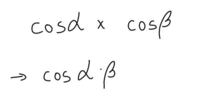 cosα × cosβ
→ cosα·β